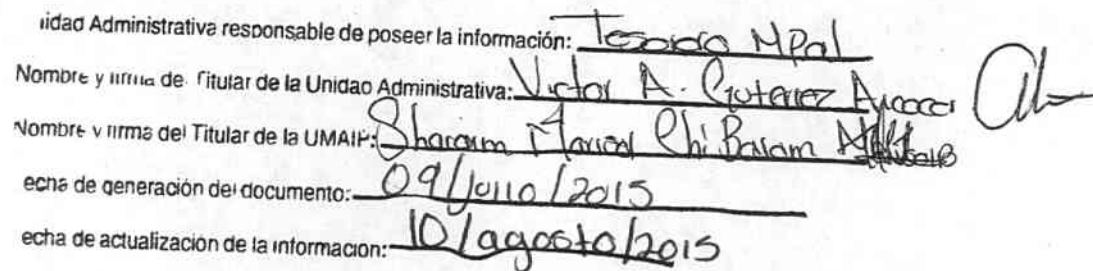 idad Administrativa responsable de poseer la información: Tesorero MPal
Nombre y firma de Titular de la Unidad Administrativa: Victor A. Guterrez
Nombre y firma del Titular de la UMAIP: Sharaim Marisol Chi Balam
echa de generación del documento: 09/julio/2015
echa de actualización de la información: 10/agosto/2015